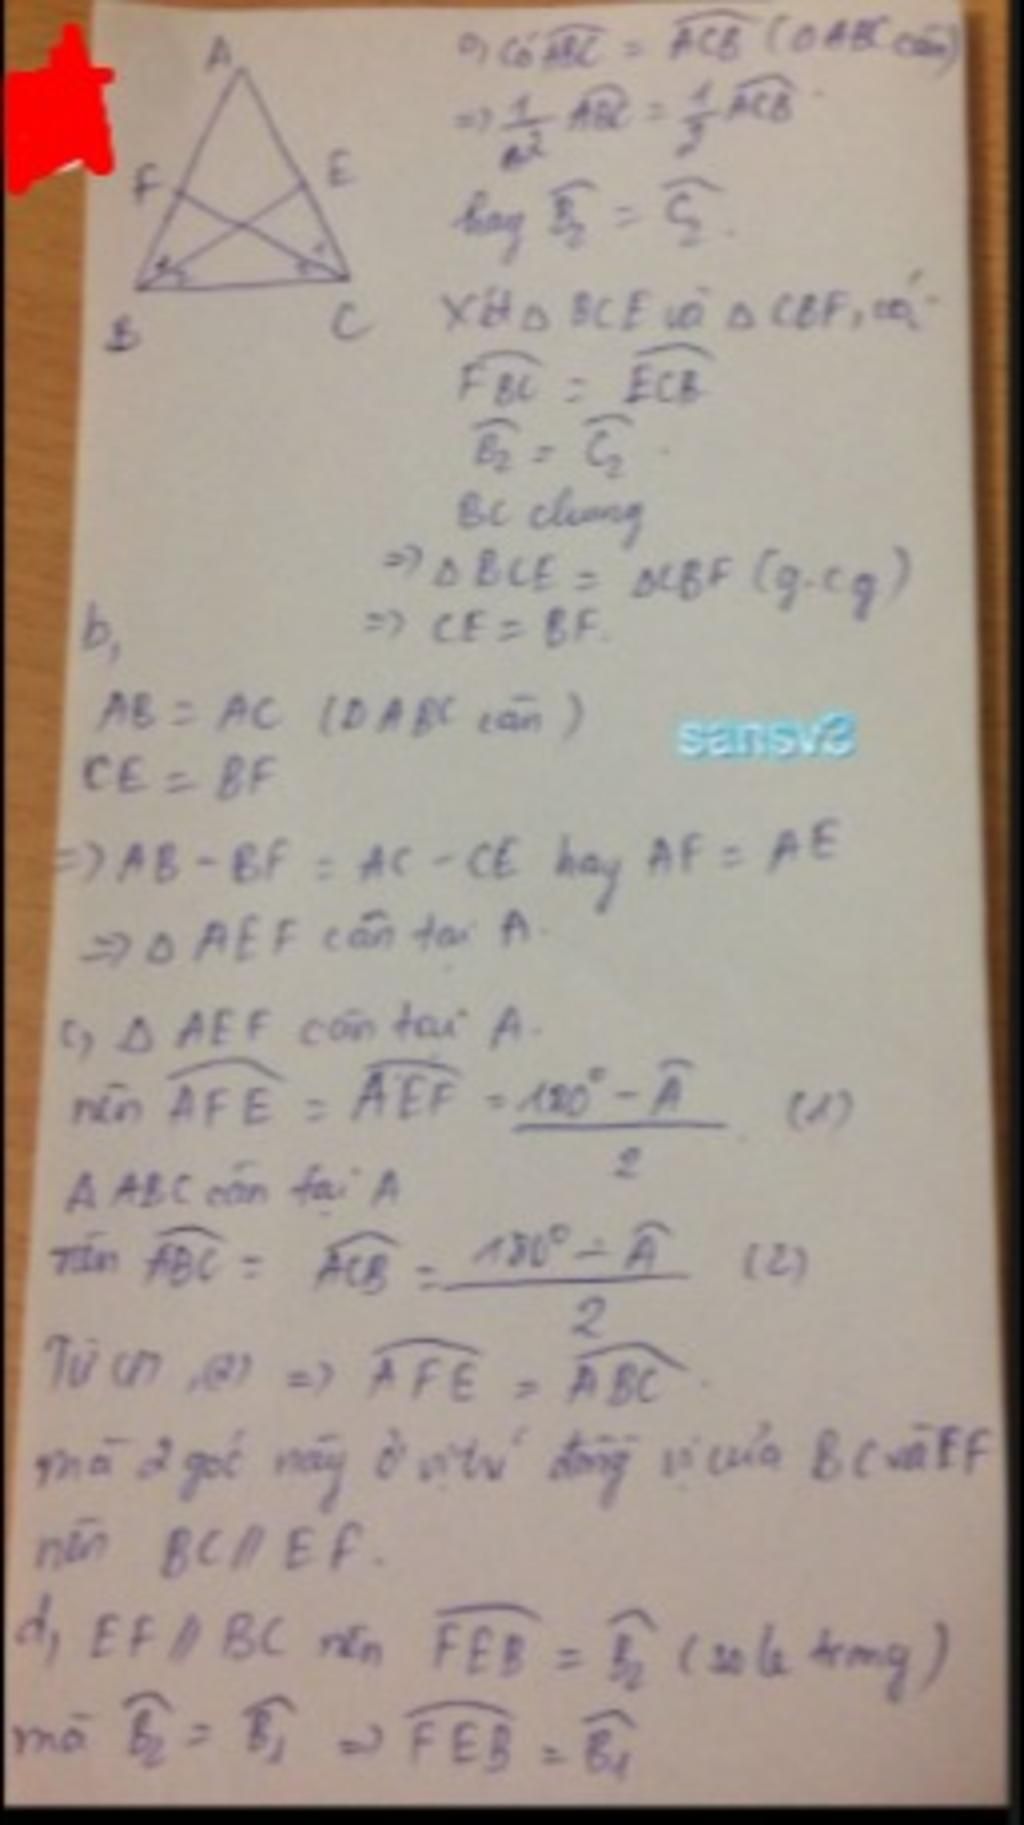 A
F
E
B
C
a, có ABC = ACB (Δ ABC cân)
=> 1/2 ABC = 1/2 ACB
hay B2 = C2.
Xét Δ BCE và Δ CBF, có:
FBC = ECB
B2 = C2
BC chung
=> Δ BCE = Δ CBF (g.c.g)
=> CE = BF.
b,
AB = AC (Δ ABC cân)
sansv3
CE = BF
=> AB - BF = AC - CE hay AF = AE
=> Δ AEF cân tại A.
c, Δ AEF cân tại A.
nên AFE = AEF = (180° - A)/2 (1)
Δ ABC cân tại A
nên ABC = ACB = (180° - A)/2 (2)
Từ (1), (2) => AFE = ABC.
mà 2 góc này ở vị trí đồng vị của BC và EF
nên BC // EF.
d, EF // BC nên FEB = B2 (so le trong)
mà B2 = B1 => FEB = B1